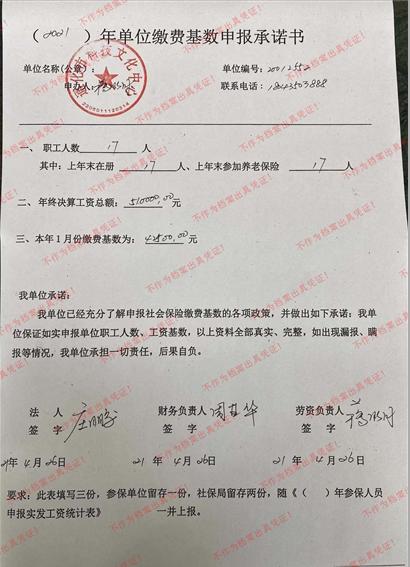 （2021）年单位缴费基数申报承诺书
单位名称(公章)：
单位编号: 20012552
申办人:
联系电话: 18443503888
2206011120314
一、 职工人数 17 人
其中: 上年末在册 17 人、上年末参加养老保险 17 人
二、 年终决算工资总额: 510000.00 元
三、本年1月份缴费基数为: 42500.00 元
我单位承诺：
我单位已经充分了解申报社会保险缴费基数的各项政策，并做出如下承诺：我单
位保证如实申报单位职工人数、工资基数，以上资料全部真实、完整，如出现漏报、瞒
报等情况，我单位承担一切责任，后果自负。
法 人
签 字
财务负责人
签 字
劳资负责人
签 字
21年 4月 26日
21年 4月 26日
21年 4月 26日
要求：此表填写三份，参保单位留存一份，社保局留存两份，随《（ ）年参保人员
申报实发工资统计表》 一并上报。
不作为档案出具凭证！